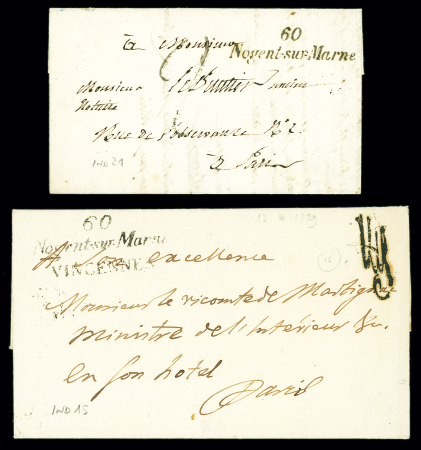 à Monsieur
60
Nogent-sur-Marne
Monsieur
Notaire
Rue de l'observance N°
à Paris
IND 21
60
Nogent-sur-Marne
VINCENNES
A Son excellence
Monsieur le vicomte de Martignac
Ministre de l'Intérieur &c.
en son hotel
Paris
IND 15